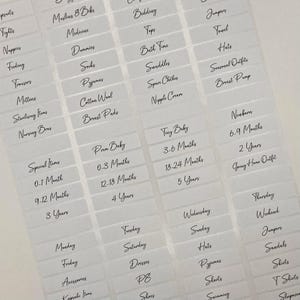 Muslins & Bibs
Bedding
Jumpers
Tights
Medicines
Tops
Towel
Nappies
Dummies
Bath Time
Hats
Feeding
Socks
Swaddles
Seasonal Outfits
Trousers
Pyjamas
Spare Clothes
Breast Pump
Mittens
Cotton Wool
Nipple Cream
Sterilising Items
Breast Pads
Nursing Bras
Newborn
Tiny Baby
6-9 Months
Prem Baby
3-6 Months
2 Years
Special Items
0-3 Months
18-24 Months
Going Home Outfit
0-1 Month
12-18 Months
5 Years
9-12 Months
4 Years
3 Years
Thursday
Wednesday
Weekend
Tuesday
Sunday
Jumpers
Monday
Saturday
Hats
Sandals
Friday
Dresses
Pyjamas
Shirts
Accessories
PE
Skirts
T Shirts
Keepsake Items
Shoes
Swimming